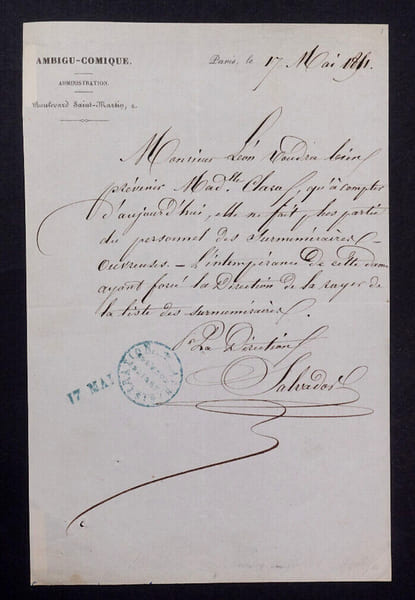 AMBIGU-COMIQUE.
ADMINISTRATION.
Boulevard Saint-Martin, 2.
Paris, le 17 Mai 1861.
Monsieur Léon voudra bien
prévenir Mad.lle Clara, qu'à compter
d'aujourd'hui, elle ne fait plus partie
du personnel des Surnuméraires
Ouvreuses – L'intempérance de cette dame
ayant forcé la Direction de la rayer de
la liste des surnuméraires.
Pr La Direction
Salvador
17 MAI